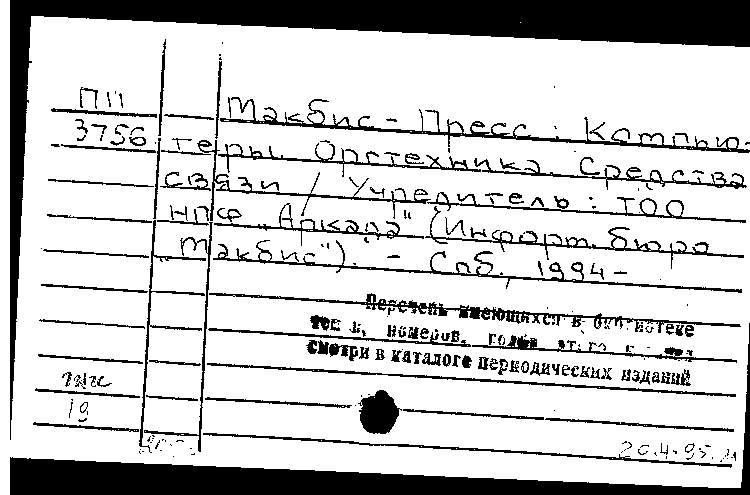 ПІІ Макбис - Пресс : Компью-
3756 теры. Оргтехника. Средства
связи / Учредитель : ТОО
НПСФ "Аркада" (Информ. бюро
"Макбис"). - Спб., 1994 -
Перечень имеющихся в библиотеке
номеров,
смотри в каталоге периодических изданий
19
20.4.95